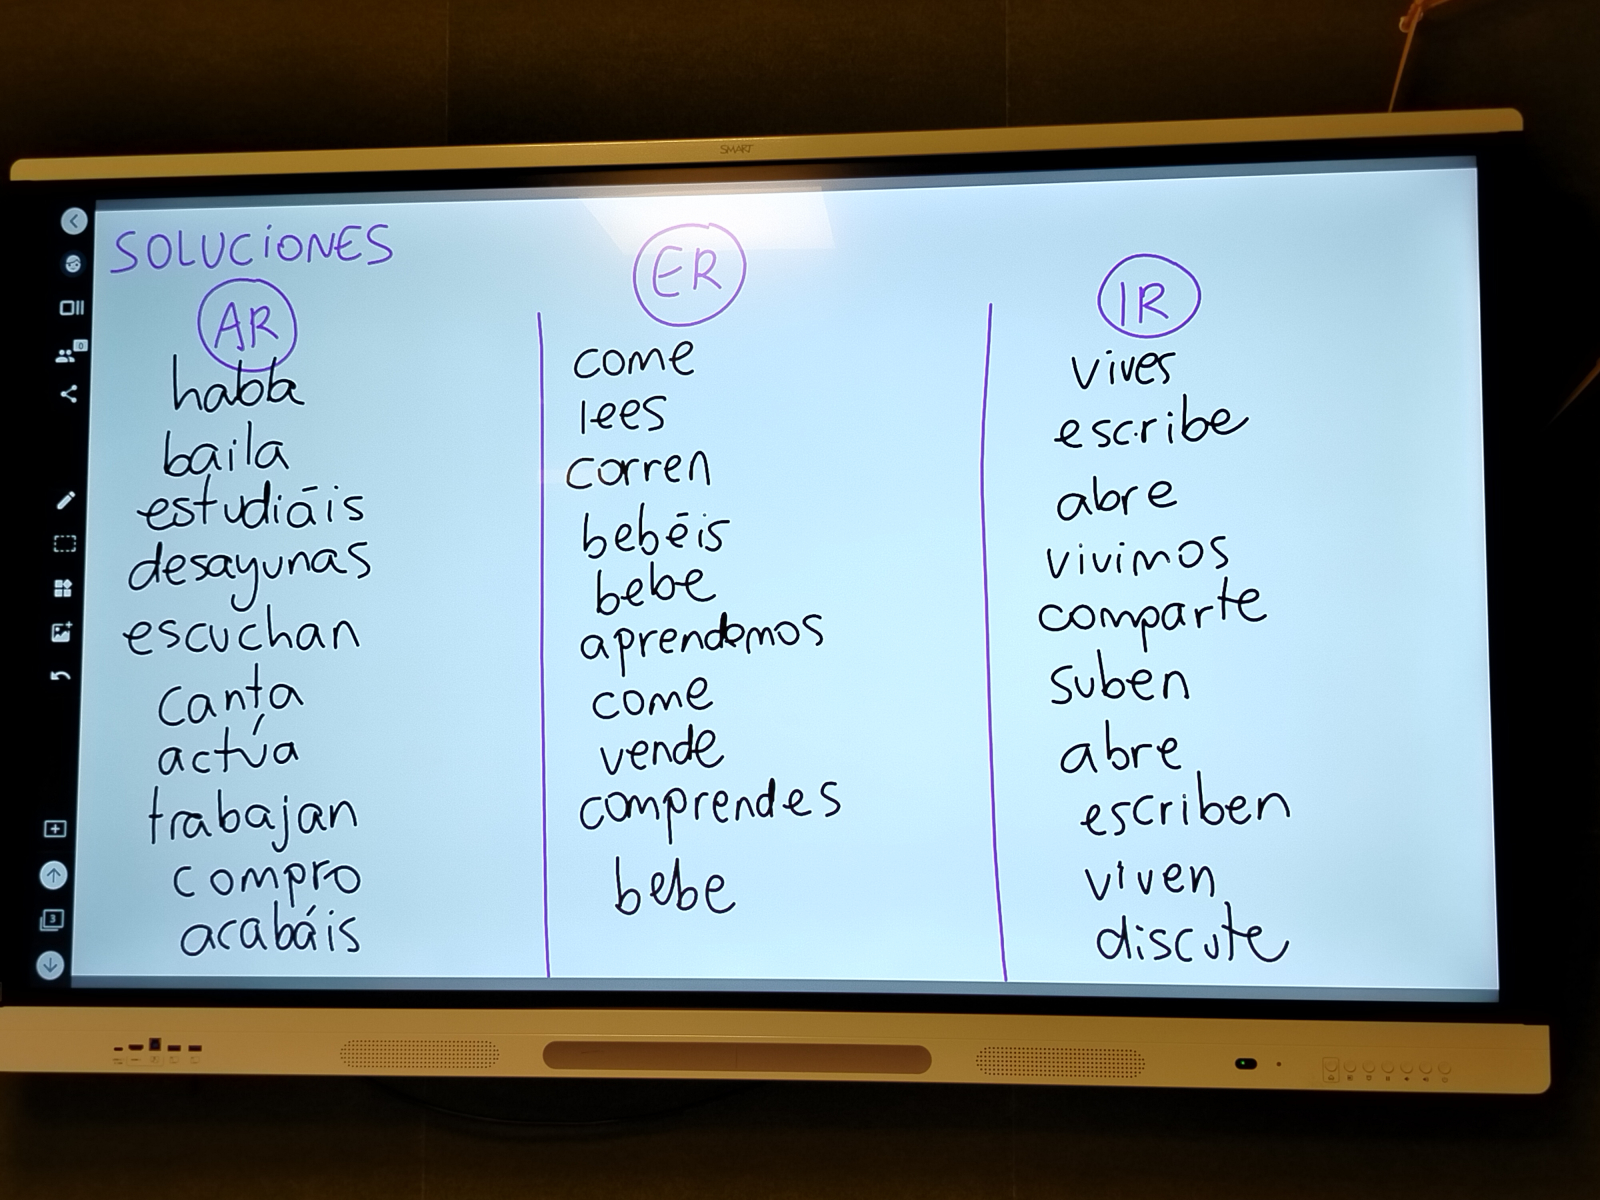 SMART
SOLUCIONES
AR
habla
baila
estudiáis
desayunas
escuchan
canta
actúa
trabajan
compro
acabáis
ER
come
lees
corren
bebéis
bebe
aprendemos
come
vende
comprendes
bebe
IR
vives
escribe
abre
vivimos
comparte
suben
abre
escriben
viven
discute
0
3